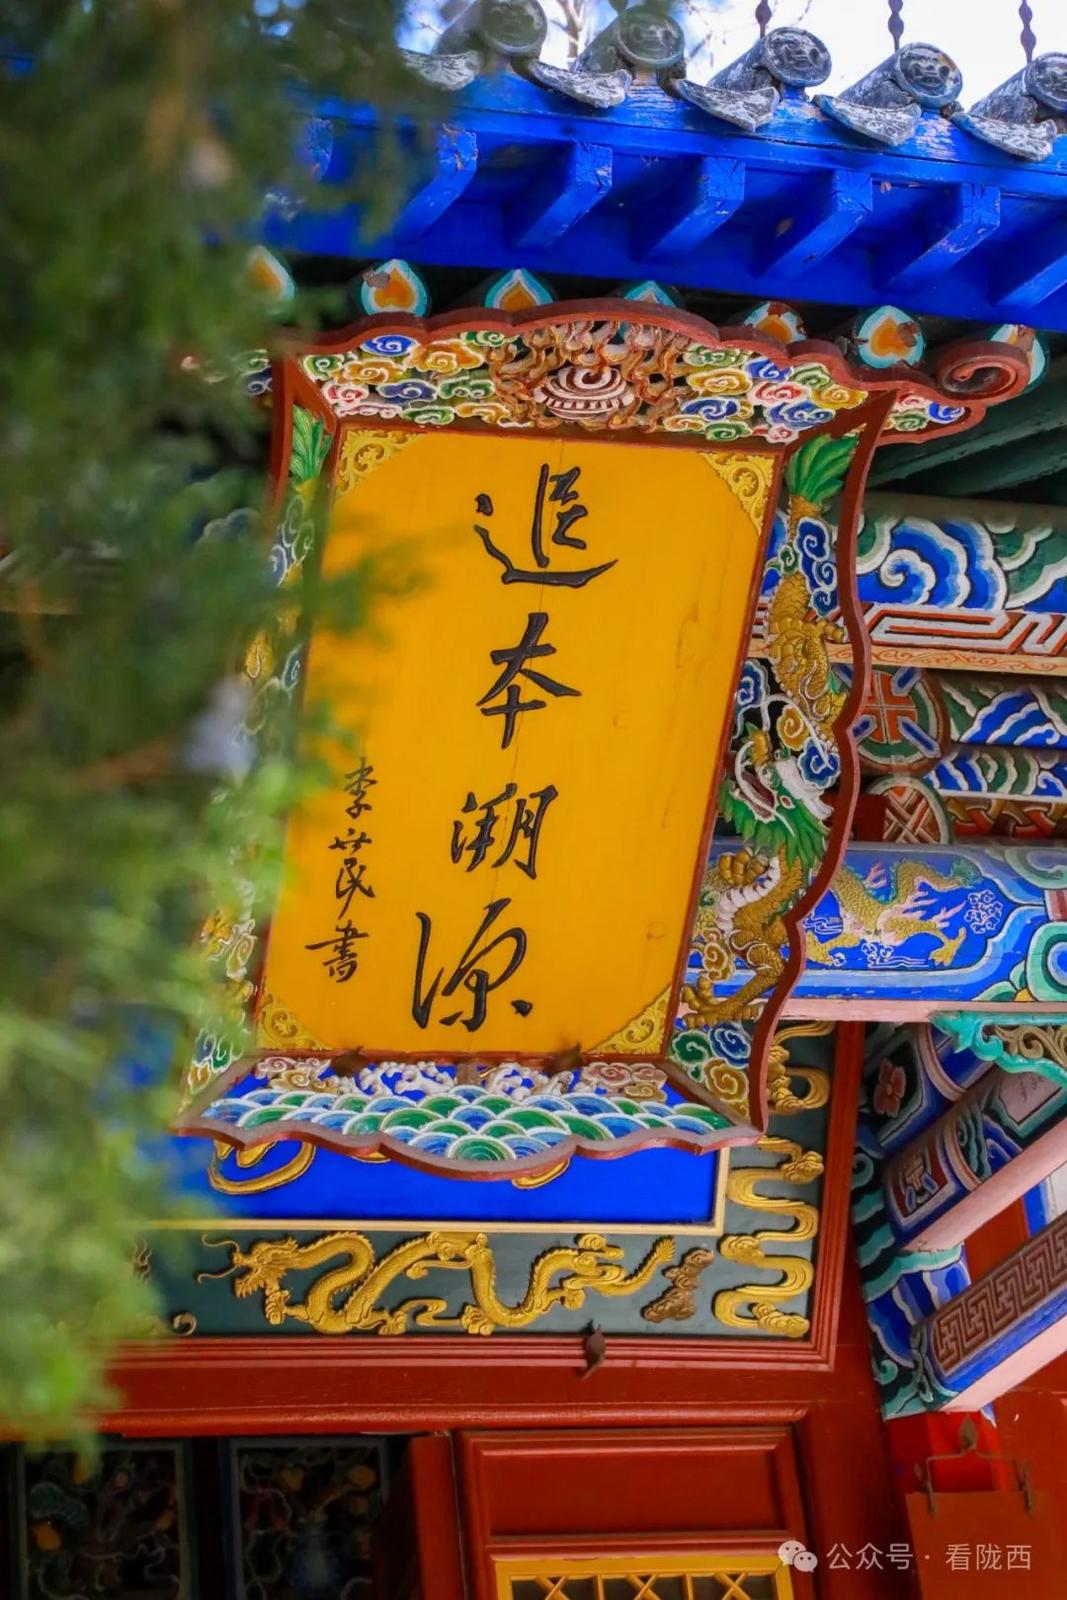 追本溯源
李世民書
公众号·看陇西